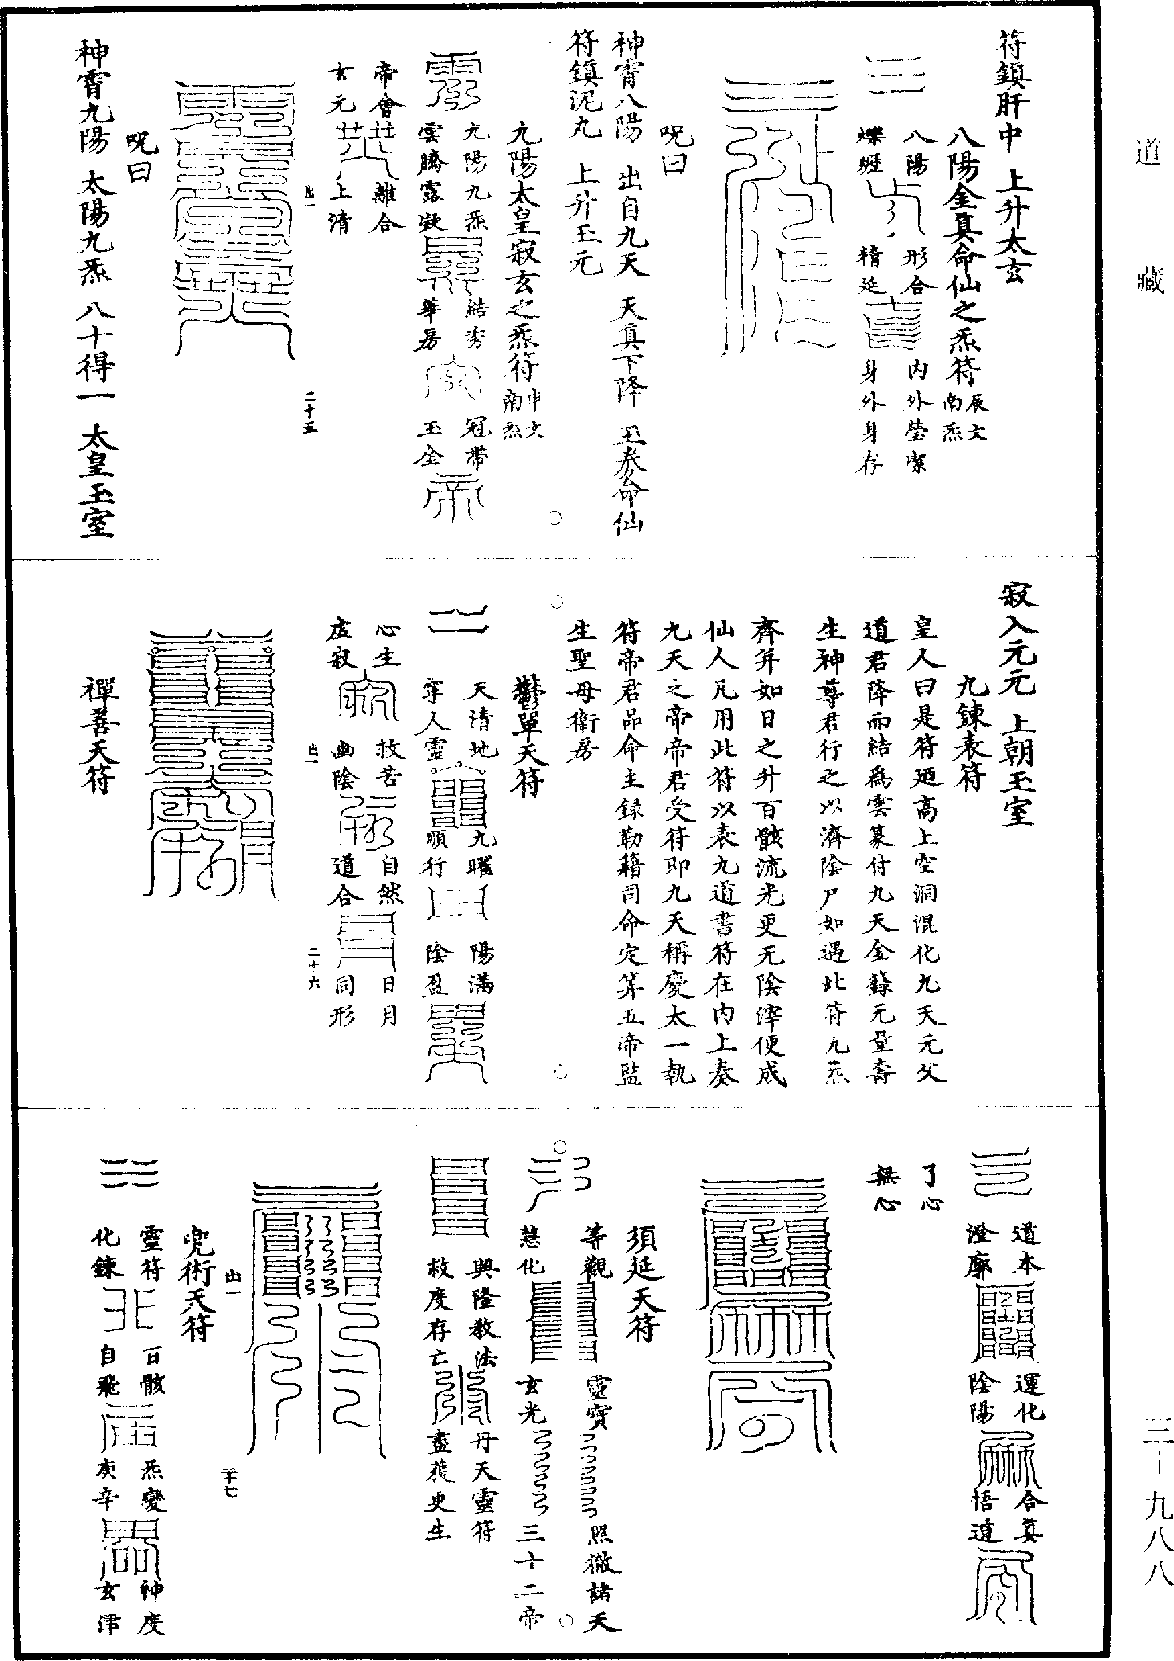 道藏
三-九八八
符鎮肝中 上升太玄
八陽金真命仙之炁符 辰文 南炁
八陽 形合 內外瑩潔
精延 身外身存
呪曰
神霄八陽 出自九天 天真下降 玉奏命仙
符鎮泥丸 上升玉元
九陽太皇寂玄之炁符 申文 南炁
九陽九炁 結秀 冠帶
雲騰露凝 華房 玉全
帝會 離合
玄元 上清
出一
二十五
呪曰
神霄九陽 太陽九炁 八十得一 太皇玉室
寂入元元 上朝玉室
九鍊表符
皇人曰是符廼高上空洞混化九天元父
道君降而結為雲篆付九天金籙元量壽
生神尊君行之以濟陰尸如遇此符九炁
齊并如日之升百骸流光更无陰滓便成
仙人凡用此符以表九道書符在內上奏
九天之帝帝君受符即九天稱慶太一執
符帝君品命主錄勒籍司命定筭五帝監
生聖母衛房
鬱單天符
天清地 九曜 陽滿
寧人靈 順行 陰盈
心生 救苦 自然 日月
虛寂 幽陰 道合 同形
出一
二十六
禪善天符
道本 運化 合真
澄廓 陰陽 悟道
了心
無心
須延天符
等觀 靈寶 照徹諸天
慧化 玄光 三十二帝
興隆教法 丹天靈符
救度存亡 盡獲更生
出一
二十七
兜術天符
靈符 百骸 炁變 神度
化鍊 自飛 庚辛 玄澤